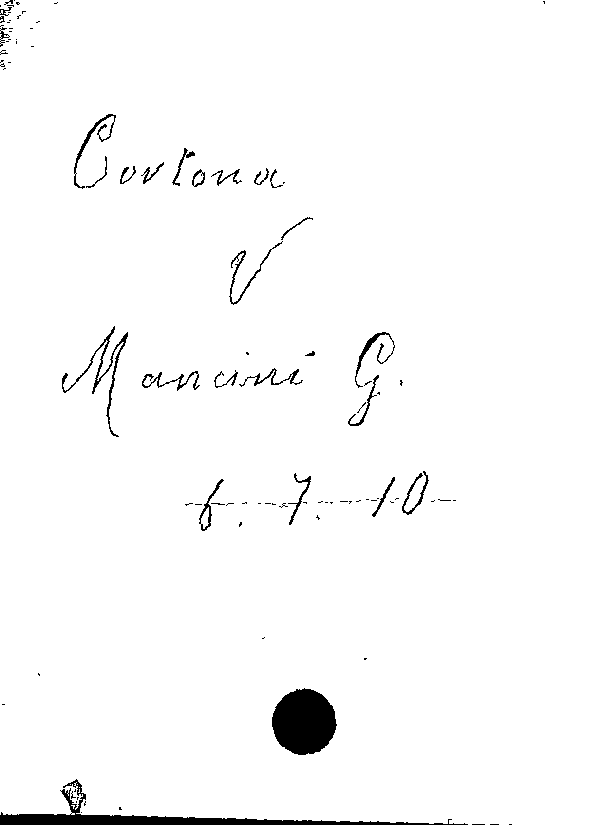 Cortona
V
Mancini G.
6. 7. 10